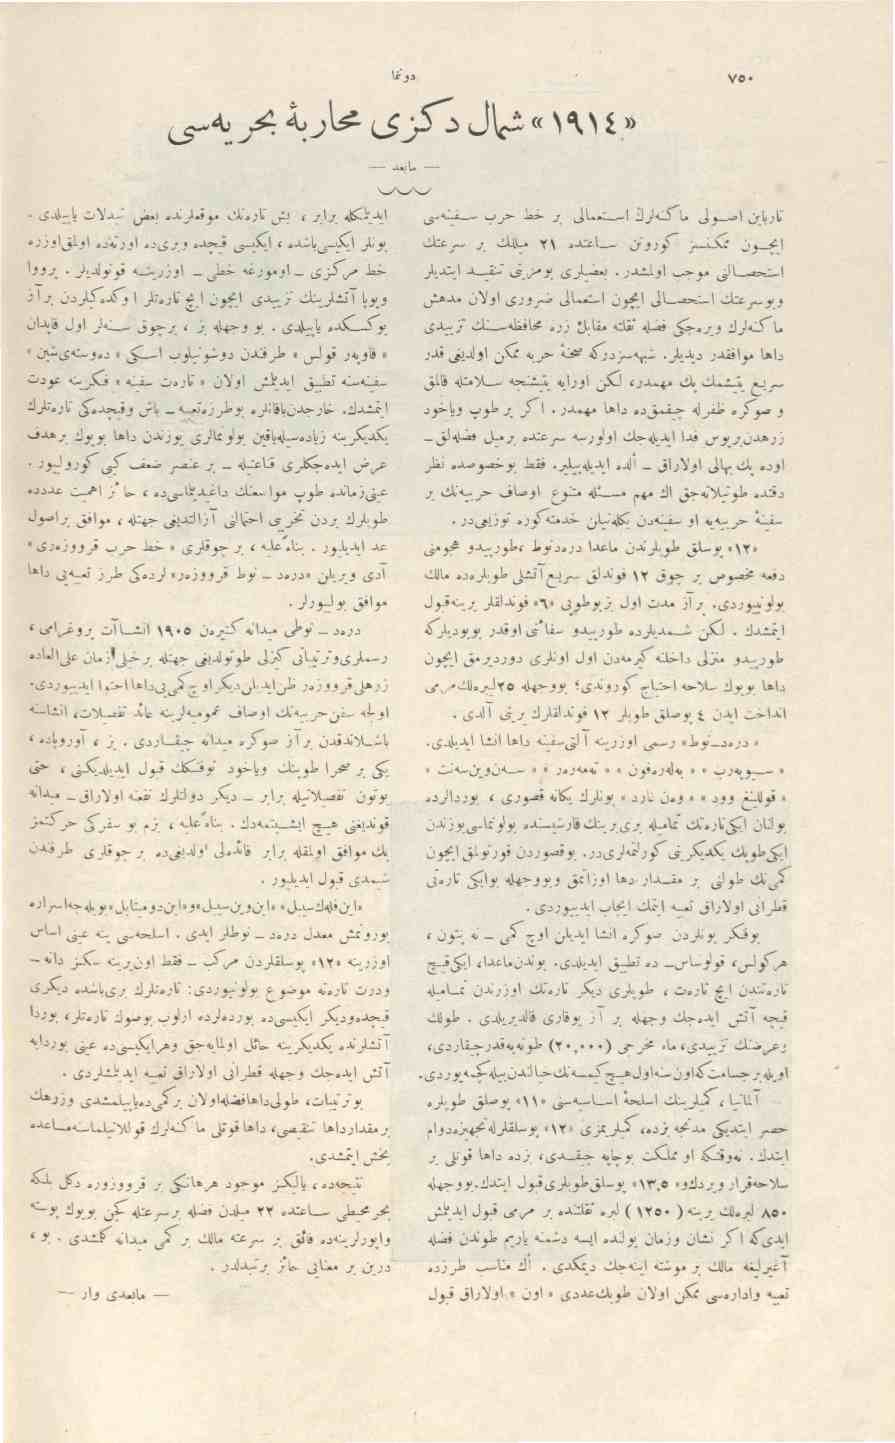 ٧٥٠
دونما
«١٩١٤» شمال دكزی محاربهٔ بحریه‌سی
— مابعد —
تاربین اصولی ماكنه‌لرك استعمالی بر خط حرب سفینه‌سی
ایچون ممكنسز كورونن ساعتده ٢١ میللك بر سرعتك
استحصالنی موجب اولمشدر. بعضیلری بومزیتی تنقید ایتدیلر
وبوسرعتك استحصالی ایچون استعمالی ضروری اولان مدهش
ماكنه‌لرك ویره‌جكی فضله ثقلته مقابل زره محافظه‌سنك تزییدی
داها موافقدر دیدیلر. شبهه‌سزدركه صحنهٔ حربه ممكن اولدیغی قدر
سریع یتیشمك پك مهمدر، لكن اورایه یتیشنجه سلامتله قالمق
و صوكره ظفرله چیقمقده داها مهمدر. اكر بر طوپ ویاخود
زرهدن بربوس فدا ایدیله‌جك اولورسه سرعتده برمیل فضله‌لق –
اوده پك بهالی اولاراق – الده ایدیله‌بیلیر. فقط بوخصوصده نظر
دقتده طوتیلاته‌جق اك مهم مسئله متنوع اوصاف حربیه‌نك بر
سفینهٔ حربیه‌یه او سفینه‌دن بكله‌نیلن خدمته‌كوره توزیعیدر.
«١٢» بوسلق طوپلرندن ماعدا دره‌دنوط، طورپیدو هجومنی
دفعه مخصوص بر چوق ١٢ فوندلق سریع آتشلی طوپلره‌ده مالك
بولونیوردی. بر آز مدت اول بزبوطوپی «٦» فوندلقلر یرینه‌قبول
ایتمشدك. لكن شمدیلرده طورپیدو سفائنی اوقدر بویودیلركه
طورپیدو منزلی داخلنه كیرمه‌دن اول اونلری دوردیرمق ایچون
داها بویوك سلاحه احتیاج كوروندی؛ بووجهله ٢٥لیره‌لك مرمی
انداخت ایدن ٤ بوصلق طوپلر ١٢ فوندلقلرك یرینی آلدی.
«دره‌د–نوط» رسمی اوزرینه آلتی سفینه داها انشا ایدیلدی.
«سوپه‌رب» «به‌لله‌ره‌فون» «ته‌مه‌ره‌ر» «سه‌ن‌وین‌سه‌نت»
«قوللینغ وود» «وه‌ن نارد» بونلرك یكانه قصوری، بوردالرده
بولنان ایكی‌تاره‌تك تمامیله بری برینك قارشیسنده بولونماسی‌یوزندن
ایكی‌طوپك یكدیكرینی كورلتمه‌لری‌در. بوقصوردن قورتولمق ایچون
كمی‌نك طولنی بر مقدار دها اوزاتمق وبووجهله بوایكی تاره‌تی
قطرانی اولاراق تعبیه ایتمك ایجاب ایدییوردی.
بوفكر بونلردن صوكره انشا ایدیلن اوچ كمی – نه پتون،
هركولس، قولوساس– ده تطبیق ایدیلدی. بوندن‌ماعدا، ایكی‌قیچ
تاره‌تندن ایچ تاره‌ت، طوپلری دیكر تاره‌تك اوزرندن تمامیله
قیچه آتش ایده‌جك وجهله بر آز یوقاری قالدیریلدی. طولك
وعرضك تزییدی، ماء مخرجی (٢٠,٠٠٠) طونه‌یه‌قدرچیقاردی،
اویله‌برجسامت‌كه‌اون سنه‌اول‌هیچ‌كیمسه‌نك‌خیالندن‌بیله‌كچمه‌یوردی.
آلمانیا، كمیلرینك اسلحهٔ اساسیه‌سنی «١١» بوصلق طوپلره
حصر ایتدیكی مدتجه بزده، كمیلریمزی «١٢» بوسلقلرله‌تجهیزه‌دوام
ایتدك. نه‌وقتكه او مملكت بوچاپه چیقدی، بزده داها قوتلی بر
سلاحه‌قرار ویردك‌و«١٣,٥» بوسلق‌طوپلری‌قبول ایتدك.بووجهله
٨٥٠ لیره‌لك یرینه (١٢٥٠) لیره ثقلتنده بر مرمی قبول ایدیلمش
ایدی‌كه اكر نشان وزمان یولنده ایسه دشمنه یاریم طوندن فضله
آغیرلیغه مالك بر موشته اینه‌جك دیمكدی. اك مناسب طرزده
تعبیه واداره‌سی ممكن اولان طوپك‌عددی «اون» اولاراق قبول
ایدیلمكله برابر، بش تاره‌تك موقعلرنده بعض تبدلات یاپیلدی.
بونلر ایكیسی‌باشده، ایكیسی قیچده وبری‌ده اورته‌ده اولمق‌اوزره
خط مركزی – اومورغه خطی – اوزرینه قونولدیلر. پرووا
وپوپا آتشلرینك تزییدی ایچون ایچ تاره‌تلر اوكده‌كیلردن برآز
یوكسكده یاپیلدی. بو وجهله بز، برچوق سنه‌لر اول قاپدان
«قاوپه‌ر قولس» طرفندن دوشونیلوب اسكی «ده‌وسته‌ی‌شین»
سفینه‌سنه تطبیق ایدیلمش اولان «تاره‌ت سفینه» فكرینه عودت
ایتمشدك. خارجدن‌باقانلره بوطرزه‌تعبیه – باش وقیچده‌كی تاره‌تلرك
یكدیكرینه زیاده‌سیله‌یاقین بولونمالری یوزندن داها بویوك برهدف
عرض ایده‌جكلری قناعتیله – بر عنصر ضعف كبی كورولیور.
عینی‌زمانده طوپ مواسعنك داغیدیلماسی‌ده، حائز اهمیت عددده
طوپلرك بردن تخریبی احتمالنی آزالتدیغی جهتله، موافق براصول
عد ایدیلیور. بناءًعلیه، بر چوقلری «خط حرب قرووزه‌ری»
آدی ویریلن «دره‌د – نوط قرووزه‌ر» لرده‌كی طرز تعبیه‌یی داها
موافق بولیورلر.
دره‌د – نوطی میدانه كتیره‌ن ١٩٠٥ انشاآت پروغرامی،
رسملری‌وترتیباتی كیزلی طوتولدیغی جهتله برخیلی‌زمان علی‌العاده
زرهلی‌قرووزه‌ر ظن‌ایدیلن‌دیكر اوچ كمی‌یی‌داها احتوا ایدییوردی.
اولجه سفن حربیه‌نك اوصاف عمومیه‌لرینه عائد تفصیلات، انشاسنه
باشلاندقدن برآز صوكره میدانه چیقاردی. بز، آوروپاده،
یكی بر صحرا طوپنك ویاخود توفنكك قبول ایدیلدیكنی، حتی
بوتون تفصلاتیله برابر – دیكر دولتلرك نفعنه اولاراق – میدانه
قوندیغنی هیچ ایشیتمه‌دك. بناءًعلیه، بزم بو سفركی حركتمز
پك موافق اولمقله برابر فائده‌لی اولدیغی‌ده بر چوقلری طرفندن
شمدی قبول ایدیلیور.
«این‌فله‌ك‌سیبل» «این‌وین‌سیبل» و«این‌دومیتابل» بویله‌جه‌اسراره
بورونمش معدل دره‌د – نوطلر ایدی. اسلحه‌سی ینه عینی اساس
اوزرینه «١٢» بوسلقلردن مركب – فقط اون‌یرینه سكز دانه –
ودرت تاره‌ته موضوع بولونیوردی: تاره‌تلرك بری‌باشده دیكری
قیچده‌ودیكر ایكیسی‌ده بورده‌لرده اولوب بوصوك تاره‌تلر، بوردا
آتشلرنده یكدیكرینه حائل اولمایه‌جق وهرایكیسی‌ده عینی بوردایه
آتش ایده‌جك وجهله قطرانی اولاراق تعبیه ایدیلمشلردی.
بوترتیبات، طولی‌داهافضله‌اولان بركمی‌ده‌یاپیلمشدی وزرهك
برمقدارداها تنقیصی، داها قوتلی ماكنه‌لرك قوللانیلماسنه‌مساعده
بخش ایتمشدی.
نتیجه‌ده، یالیكز موجود هرهانكی بر قرووزوره دكل بلكه
بحر محیطی ساعتده ٢٢ میلدن فضله برسرعتله كچن بویوك پوسته
واپورلرینه‌ده فائق بر سرعته مالك بر كمی میدانه كلمشدی. بو،
درین بر معنایی حائز برتبدلدر.
— مابعدی وار —